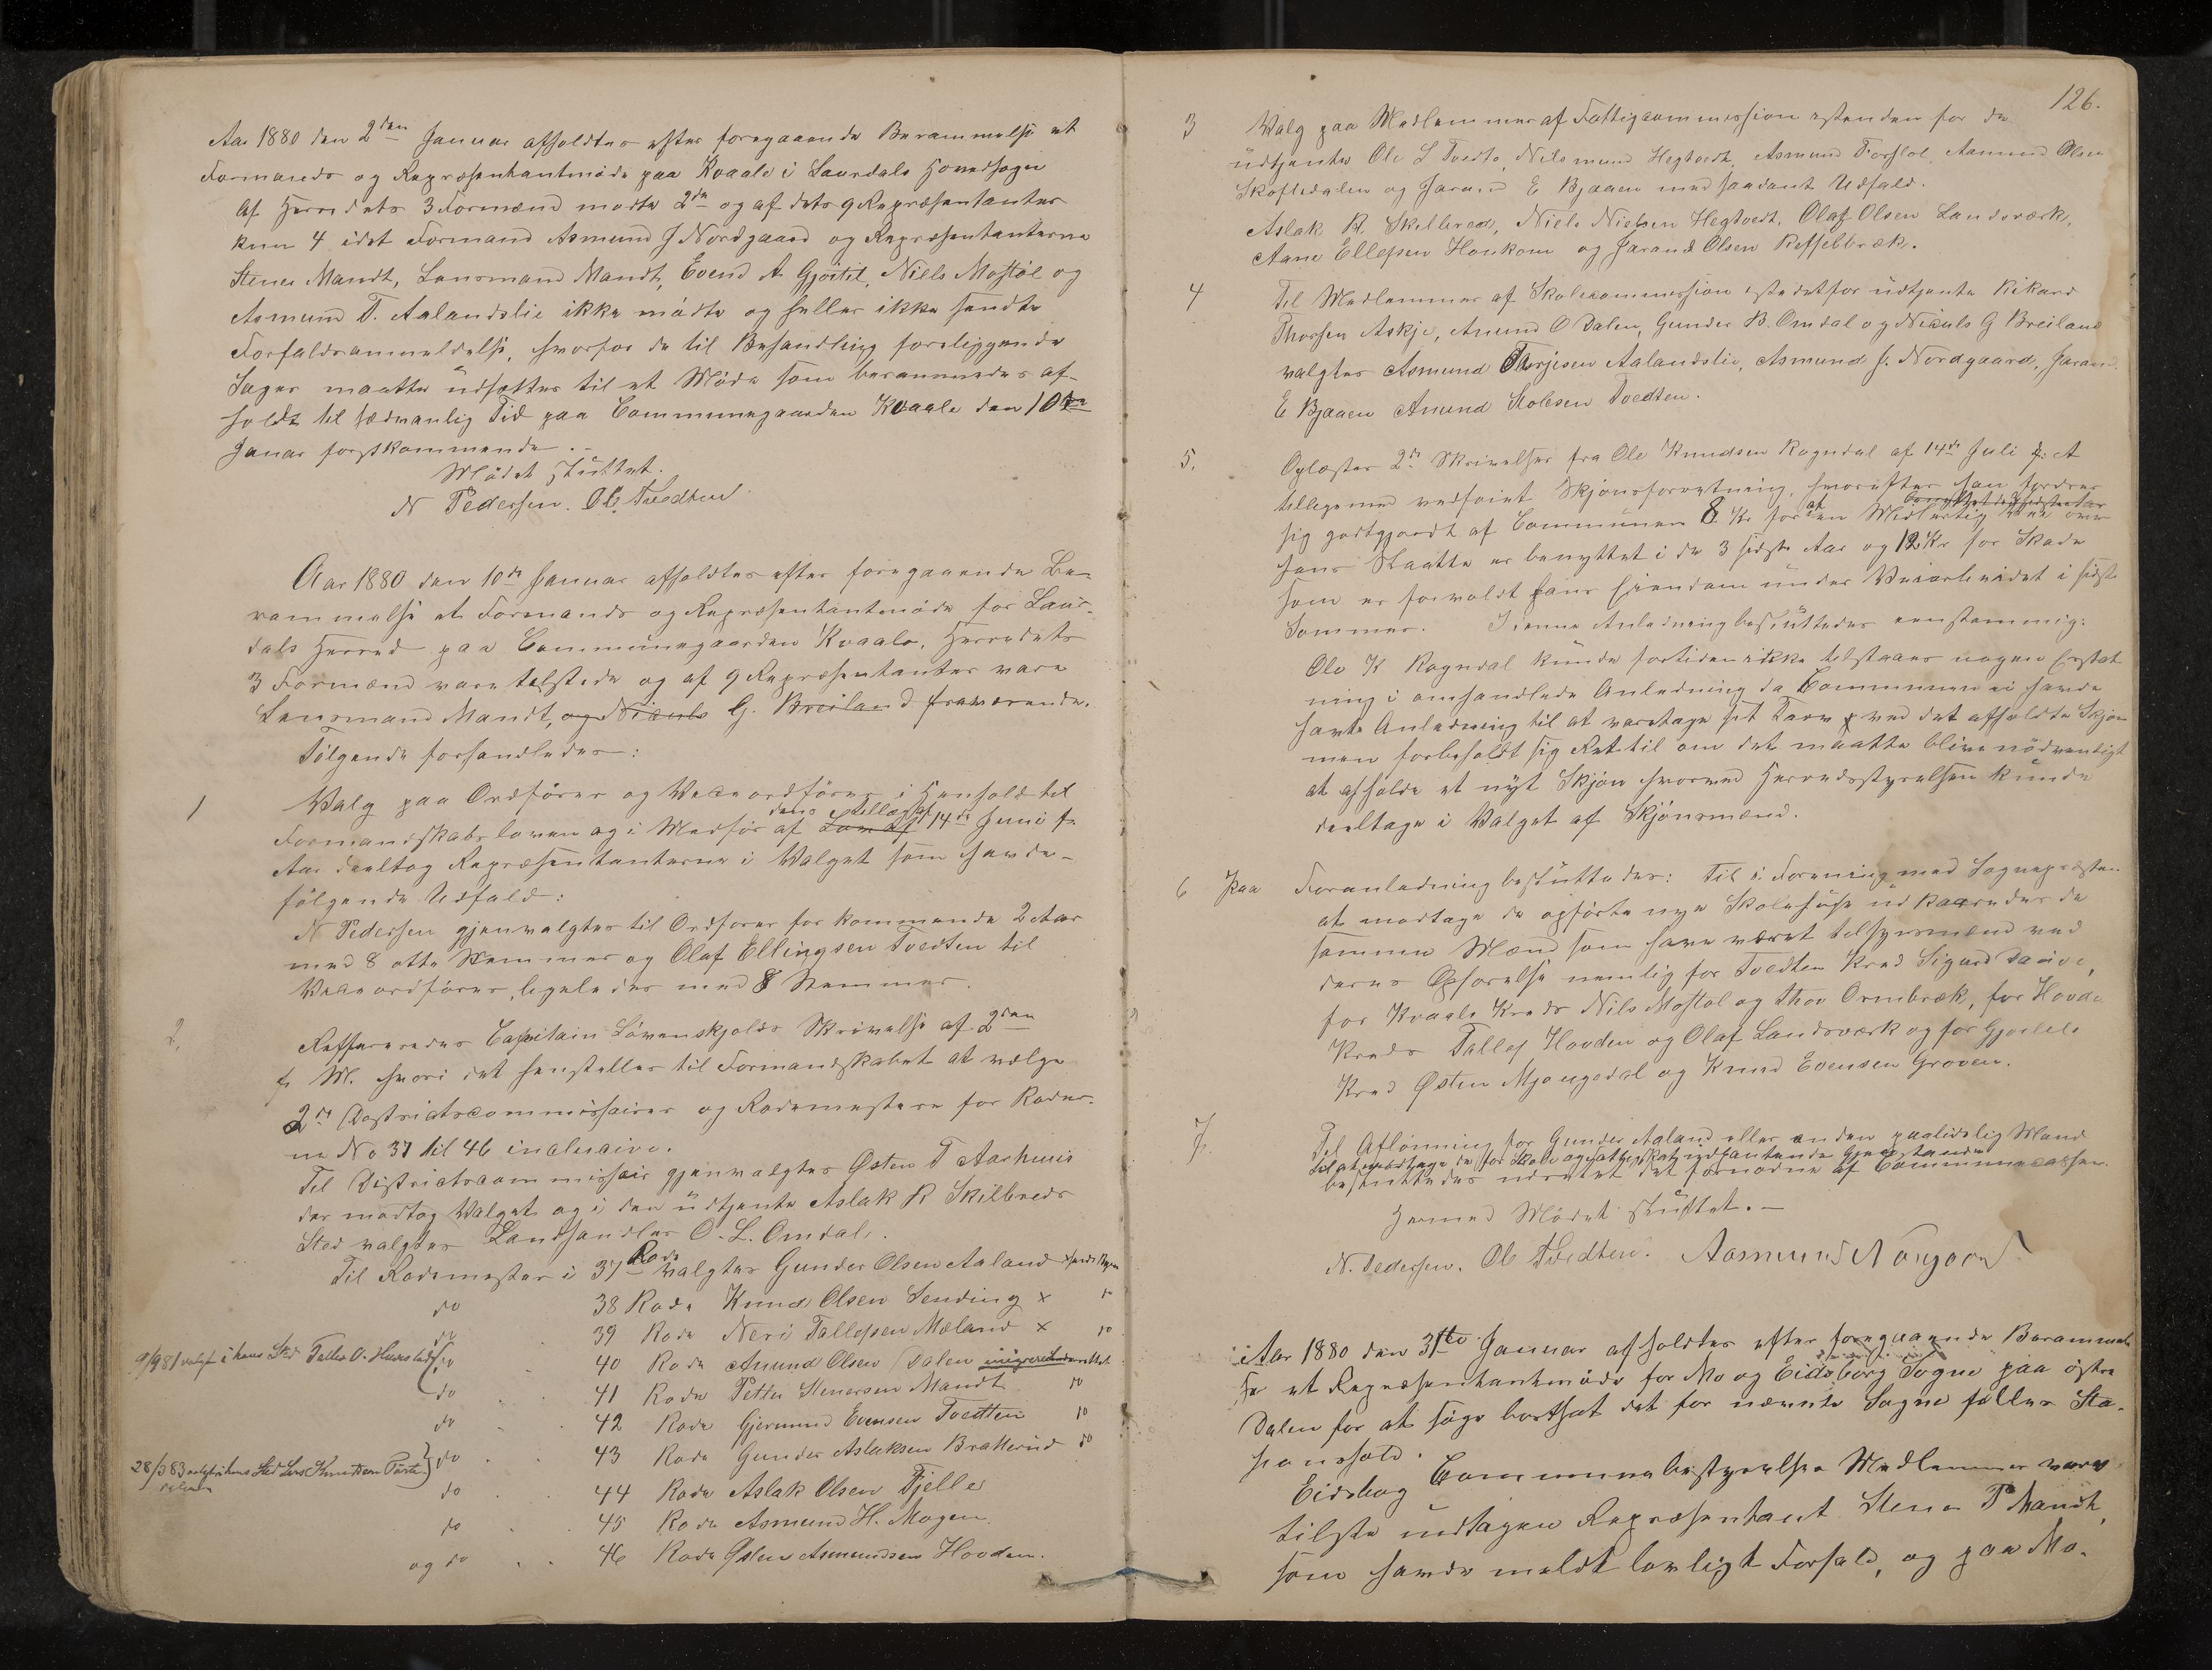 Aar 1880 den 2den Januar afholdtes efter foregaaende Berammelse et
Formands og Repræsentantmøde paa Kvaale i Laurdals Hovedsogn
Af Herredets 3 Formænd mødte 2de og af dets 9 Repræsentanter
kun 4 idet Formand Asmund J Nordgaard og Repræsentanterne
Stener Mandt, Lensmand Mandt, Evend A. Gjøitil, Niels Mostøl og
Asmund T. Aalandslie ikke mødte og heller ikke sendte
Forfaldsanmeldelse, hvorfor de til Behandling foreliggende
Sager maatte udsættes til et Møde som berammedes af-
holdt til sædvanlig Tid paa Communegaarden Kvaale den 10de
Januar førstkommende.-
Mødet sluttet.
N Pedersen. Ol. Tvedten
Aar 1880 den 10de Januar afholdtes efter foregaaende Be-
rammelse et Formands og Repræsentantmøde for Laur-
dals Herred paa Communegaarden Kvaale. Herredets
3 Formænd vare tilstede og af 9 Repræsentanter vare
Lensmand Mandt, og Niculs G. Breiland fraværende.
Følgende forhandledes:
1 Valg paa Ordfører og Viceordfører i Henhold til
Formandskabsloven og i Medfør af dens Tillæg af 14de Juni f.
Aar deeltog Repræsentanterne i Valget som havde-
følgende Udfald:
N Pedersen gjenvalgtes til Ordfører for kommende 2 Aar
med 8 otte Stemmer og Olaf Ellingsen Tvedten til
Viceordfører, ligeledes med 8 Stemmer.
2, Reffereredes Capitain Løvenskjolds Skrivelse af 2den
f. M. hvori det henstilles til Formandskabet at vælge
2de Districtscommissairer og Rodemestere for Roder-
ne No 37 til 46 inclusive.
Til Districtscommissair gjenvalgtes Østen T Aarhuus
der modtog Valget og i den udtjente Aslak R Skilbreds
Sted valgtes Landhandler O. L. Omdal.
Til Rodemester i 37te Rode valgtes Gunder Olsen Aaland
do 38 Rode Knud Olsen Sending x do
do 39 Rode Neri Tallefsen Mæland x do
9/9 81 valgt i hans Sted Tallev O. Huvestad { do 40 Rode Amund Olsen Dalen
do 41 Rode Petter Stenersen Mandt do
do 42 Rode Gjermund Evensen Tvedten do
28/3 83 valgt i hans Sted Lars Knudsen } do 43 Rode Gunder Aslaksen Bratterud do
do 44 Rode Aslak Olsen Fjelle
do 45 Rode Asmund H. Mogen.
og do 46 Rode Østen Asmundsen Hovden.
126.
3 Valg paa Medlemmer af Fattigcommission istenden for de
udtjente Ole L Tvedte, Nils mund Hegtvedt, Asmund Forsløl, Aanund Olsen
Skoftedalen og Jarand E Bjaaen med saadant Udfald.
Aslak R. Skilbred, Niels Nielsen Hegtvedt, Olaf Olsen Landsværk,
Aane Ellefsen Honkom og Jarand Olsen Reffelbræk.
4 Til Medlemmer af Skolecommission istedetfor udtjente Rikard
Thorsen Askje, Amund O Dalen, Gunder B. Omdal og Niculs G Breiland
valgtes Asmund Therjesen Aalandslie, Asmund J. Nordgaard, Jarand
E Bjaaen Amund Stolesen Tvedten.
5. Oplæstes 2de Skrivelser fra Ole Knudsen Rogndal af 14de Juli f: A
tilligemed vedføiet Skjønsforretning, hvorefter han fordrer
sig godtgjordt af Communen 8 Kr for at en Midlertidig Vei over
hans Slaatte er benyttet i de 3 sidste Aar og 12 Kr for Skade
som er forvoldt hans Eiendom under Veiarbeidet i sidste
Sommer. I denne Anledning besluttedes eenstemmig:
Ole K Rogndal kunde for tiden ikke tilstaaes nogen Erstat
ning i omhandlede Anledning da Communen ei havde
havt Anledning til at varetage sit Tarv ved det afholdte Skjøn
men forbeholdt sig Ret til om det maatte blive nødvendigt
at afholde et nyt Skjøn hvorved Herredsstyrelsen kunde
deeltage i Valget af Skjønsmænd.
6 Paa Foranledning besluttedes: Til i Forening med Sognepræsten
at modtage de opførte nye Skolehuse udkaaredes de
samme Mænd som have været tilsynsmænd ved
deres Opførelse nemlig for Tvedten Kred Sigurd Daaive,
for Kvaale Kreds Nils Mostøl og Thov Ornbræk, for Hovde
Kreds Tallef Hovden og Olaf Landsværk og for Gjøitil
Kred Østen Mjøngedal og Knud Evensen Groven.
7. Til Aflønning for Gunder Aaland eller anden paalidelig Mand
til at modtage de for Skole og Fattigskat udpantende Gjenstande
besluttedes udredet det fornødne af Communecassen.
Hermed Mødet sluttet.-
N. Pedersen. Ol Tvedten. Aasmund Norgaard
Aar 1880 den 31te Januar afholdtes efter foregaaende Berammel
se et Repræsentantmøde for Mo og Eidsborg Sogne paa østre
Dalen for at søge bortsat det for nævnte Sogne fælles Sta-
sjonshold.
Eidsborg Communebestyrelses Medlemmer vare
tilstede undtagen Repræsentant Stener P Mandt,
som havde meldt lovligt Forfald, og paa Mo-